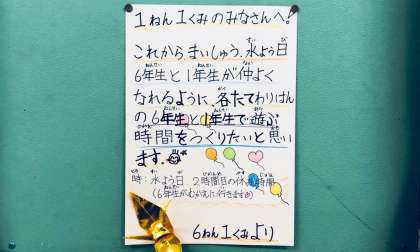 1ねん1くみのみなさんへ!
これから、まいしゅう、水よう日
6年生と1年生が仲よく
なれるように、各たてわりはん
の6年生と1年生で遊ぶ
時間をつくりたいと思い
ます。
時:水よう日 2時間目の休み時間
(6年生がむかえに行きます)
6ねん1くみより